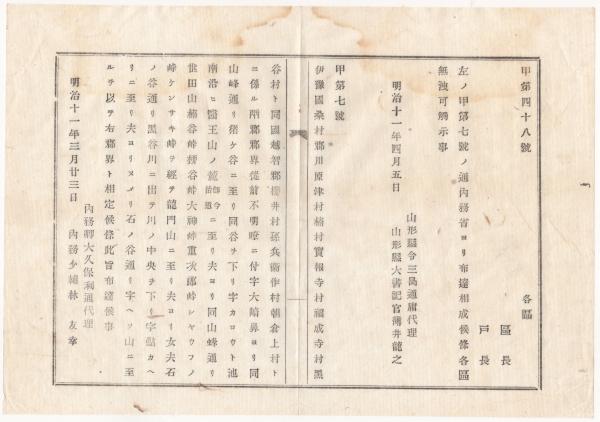 甲第四十八號
各區
區長
戸長
左ノ甲第七號ノ通内務省ヨリ布達相成候條各區
無洩可觸示事
山形縣令三島通庸代理
明治十一年四月五日
山形縣大書記官薄井龍之
甲第七號
伊豫國桑村郡川原津村楠村實報寺村福成寺村黒
谷村ト同國越智郡櫻井村孫兵衞作村朝倉上村ト
ニ係ル兩郡郡界從前不明瞭ニ付字大崎鼻ヨリ同
山峰通リ猪ケ谷ニ至リ同谷ヲ下リ字カコウト池
南沿ヒ醫王山ノ麓ニ至リ夫ヨリ同山峰通リ
世田山楠谷峠大神峠重次郎峠シヤウフノ
峠ケンサキ峠ヲ經テ龍門山ニ至リ夫ヨリ女夫石
ノ谷通リ黒谷川ニ出テ川ノ中央ヲ下リ字
リニ至リ夫ヨリヌメリ石ノ谷通リ字ヘソ山ニ至
ルヲ以テ右郡界ト相定候條此旨布達候事
内務卿大久保利通代理
明治十一年三月廿三日
内務少輔林 友幸